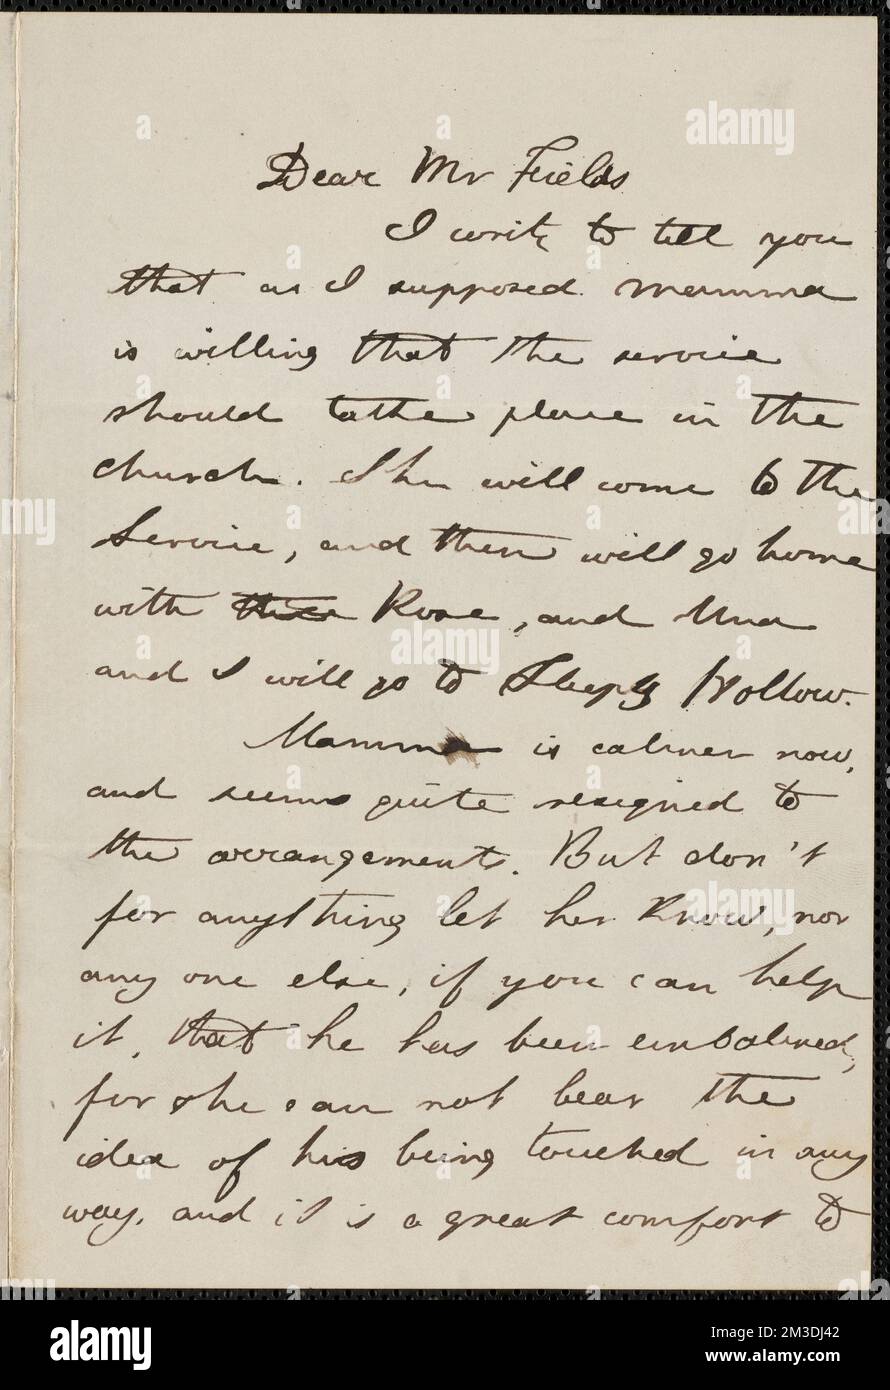 Dear Mr Fields
I write to tell you
that as I supposed Mamma
is willing that the service
should takthe place in the
church. She will come to the
Service, and then will go home
with Rose, and Una
and I will go to Sleepy Hollow.
Mamma is calmer now,
and seems quite resigned to
the arrangements. But don't
for anything let her know, nor
any one else, if you can help
it, that he has been embalmed,
for she can not bear the
idea of his being touched in any
way, and it is a great comfort to
alamy
Image ID: 2M3DJ42
www.alamy.com